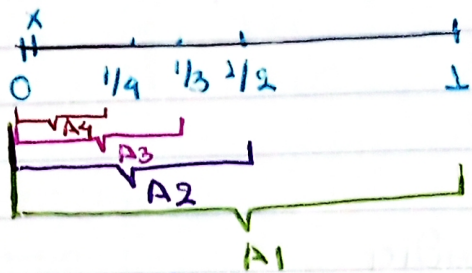 x
0 1/4 1/3 1/2 1
A4
A3
A2
A1